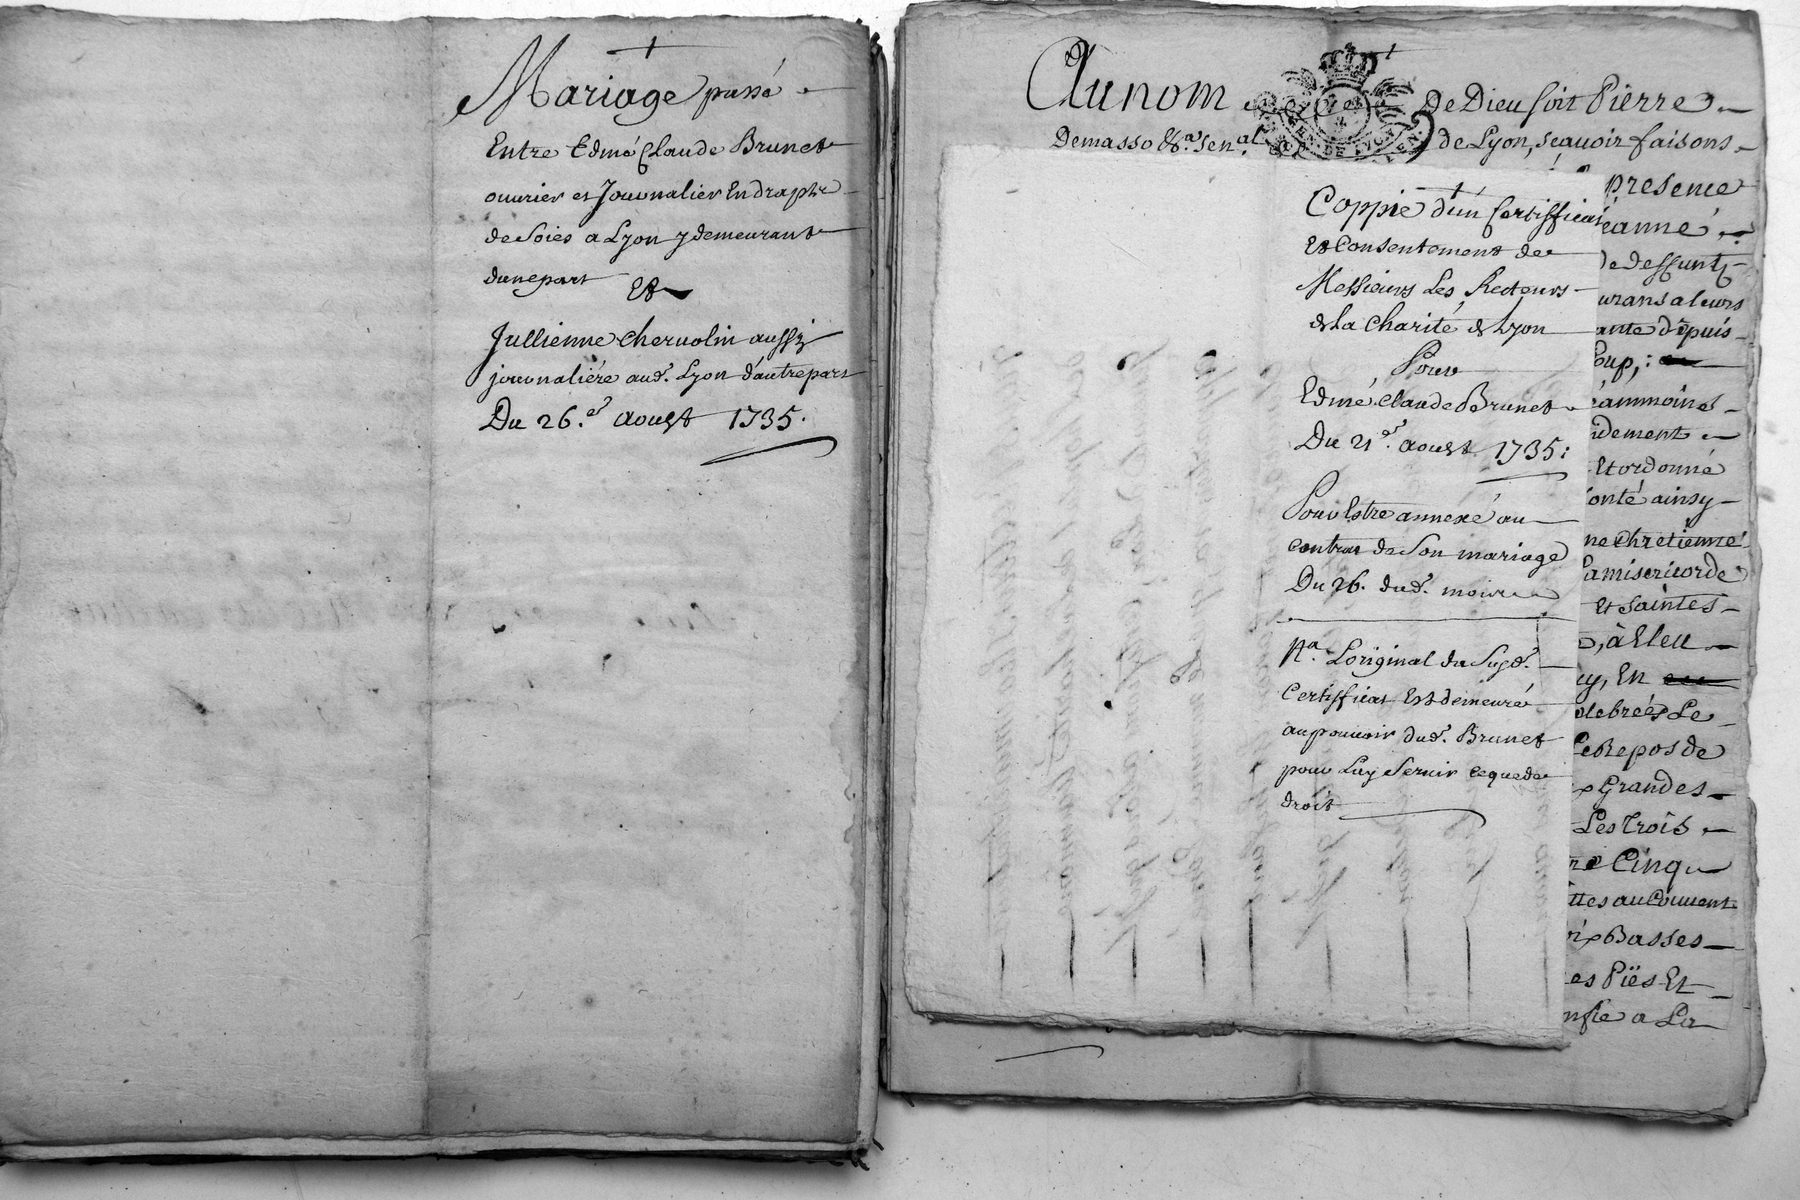 Mariage passé
Entre Edmé Claude Brunet
ouvrier et Journalier En drapts
de Soies a Lyon y demeurant
dunepart Et
Jullienne chervolin aussy
journaliére aud. Lyon d'autrepart
Du 26.e Aoust 1735.
Au nom De Dieu soit Pierre
Demasso &a. Sen.al de Lyon, sçavoir faisons
Coppie d'un Certifficat
Et Consentement de
Messieurs Les Recteurs
de la Charité de Lyon
Pour
Edmé Claude Brunet
Du 21e. Aoust 1735:
Pour Estre annexé au
contrat de Son mariage
Du 26. dud. mois
Na. Loriginal du Susd.
Certifficat Est demeuré
au pouvoir dud. Brunet
pour Luy Servir ceque de
droit
presence
eanne
de deffunt
urans a leurs
ante depuis
Loup,:
éammoins
udement
Et ordonné
onté ainsy
ne Chretienne
La misericorde
Et Saintes
, à Elleu
cy, En
elebrées Le
Le Repos de
Grandes
Les Trois
re Cinq
ttes au Couvent
Basses
es Piës Et
nsle a La